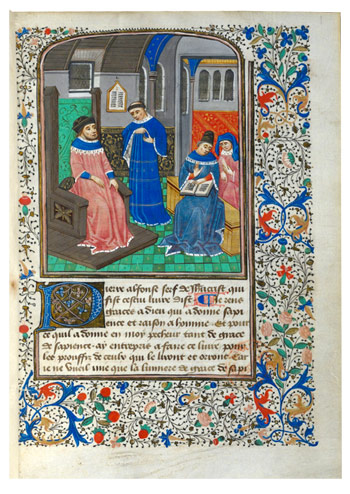 Pierre alfonse serf de Jhucrist, qui
fist cestui livre dist. Je rens
graces a dieu qui a donne sapi
ence et raison a homme. Et pour
ce quil a donne en moy pecheur tant de grace
de sapience ay entrepris a faire ce livre pour
les prouffis de ceulx qui le liront et orront. Car
ie ne vueil mie que la lumiere de grace de sapi